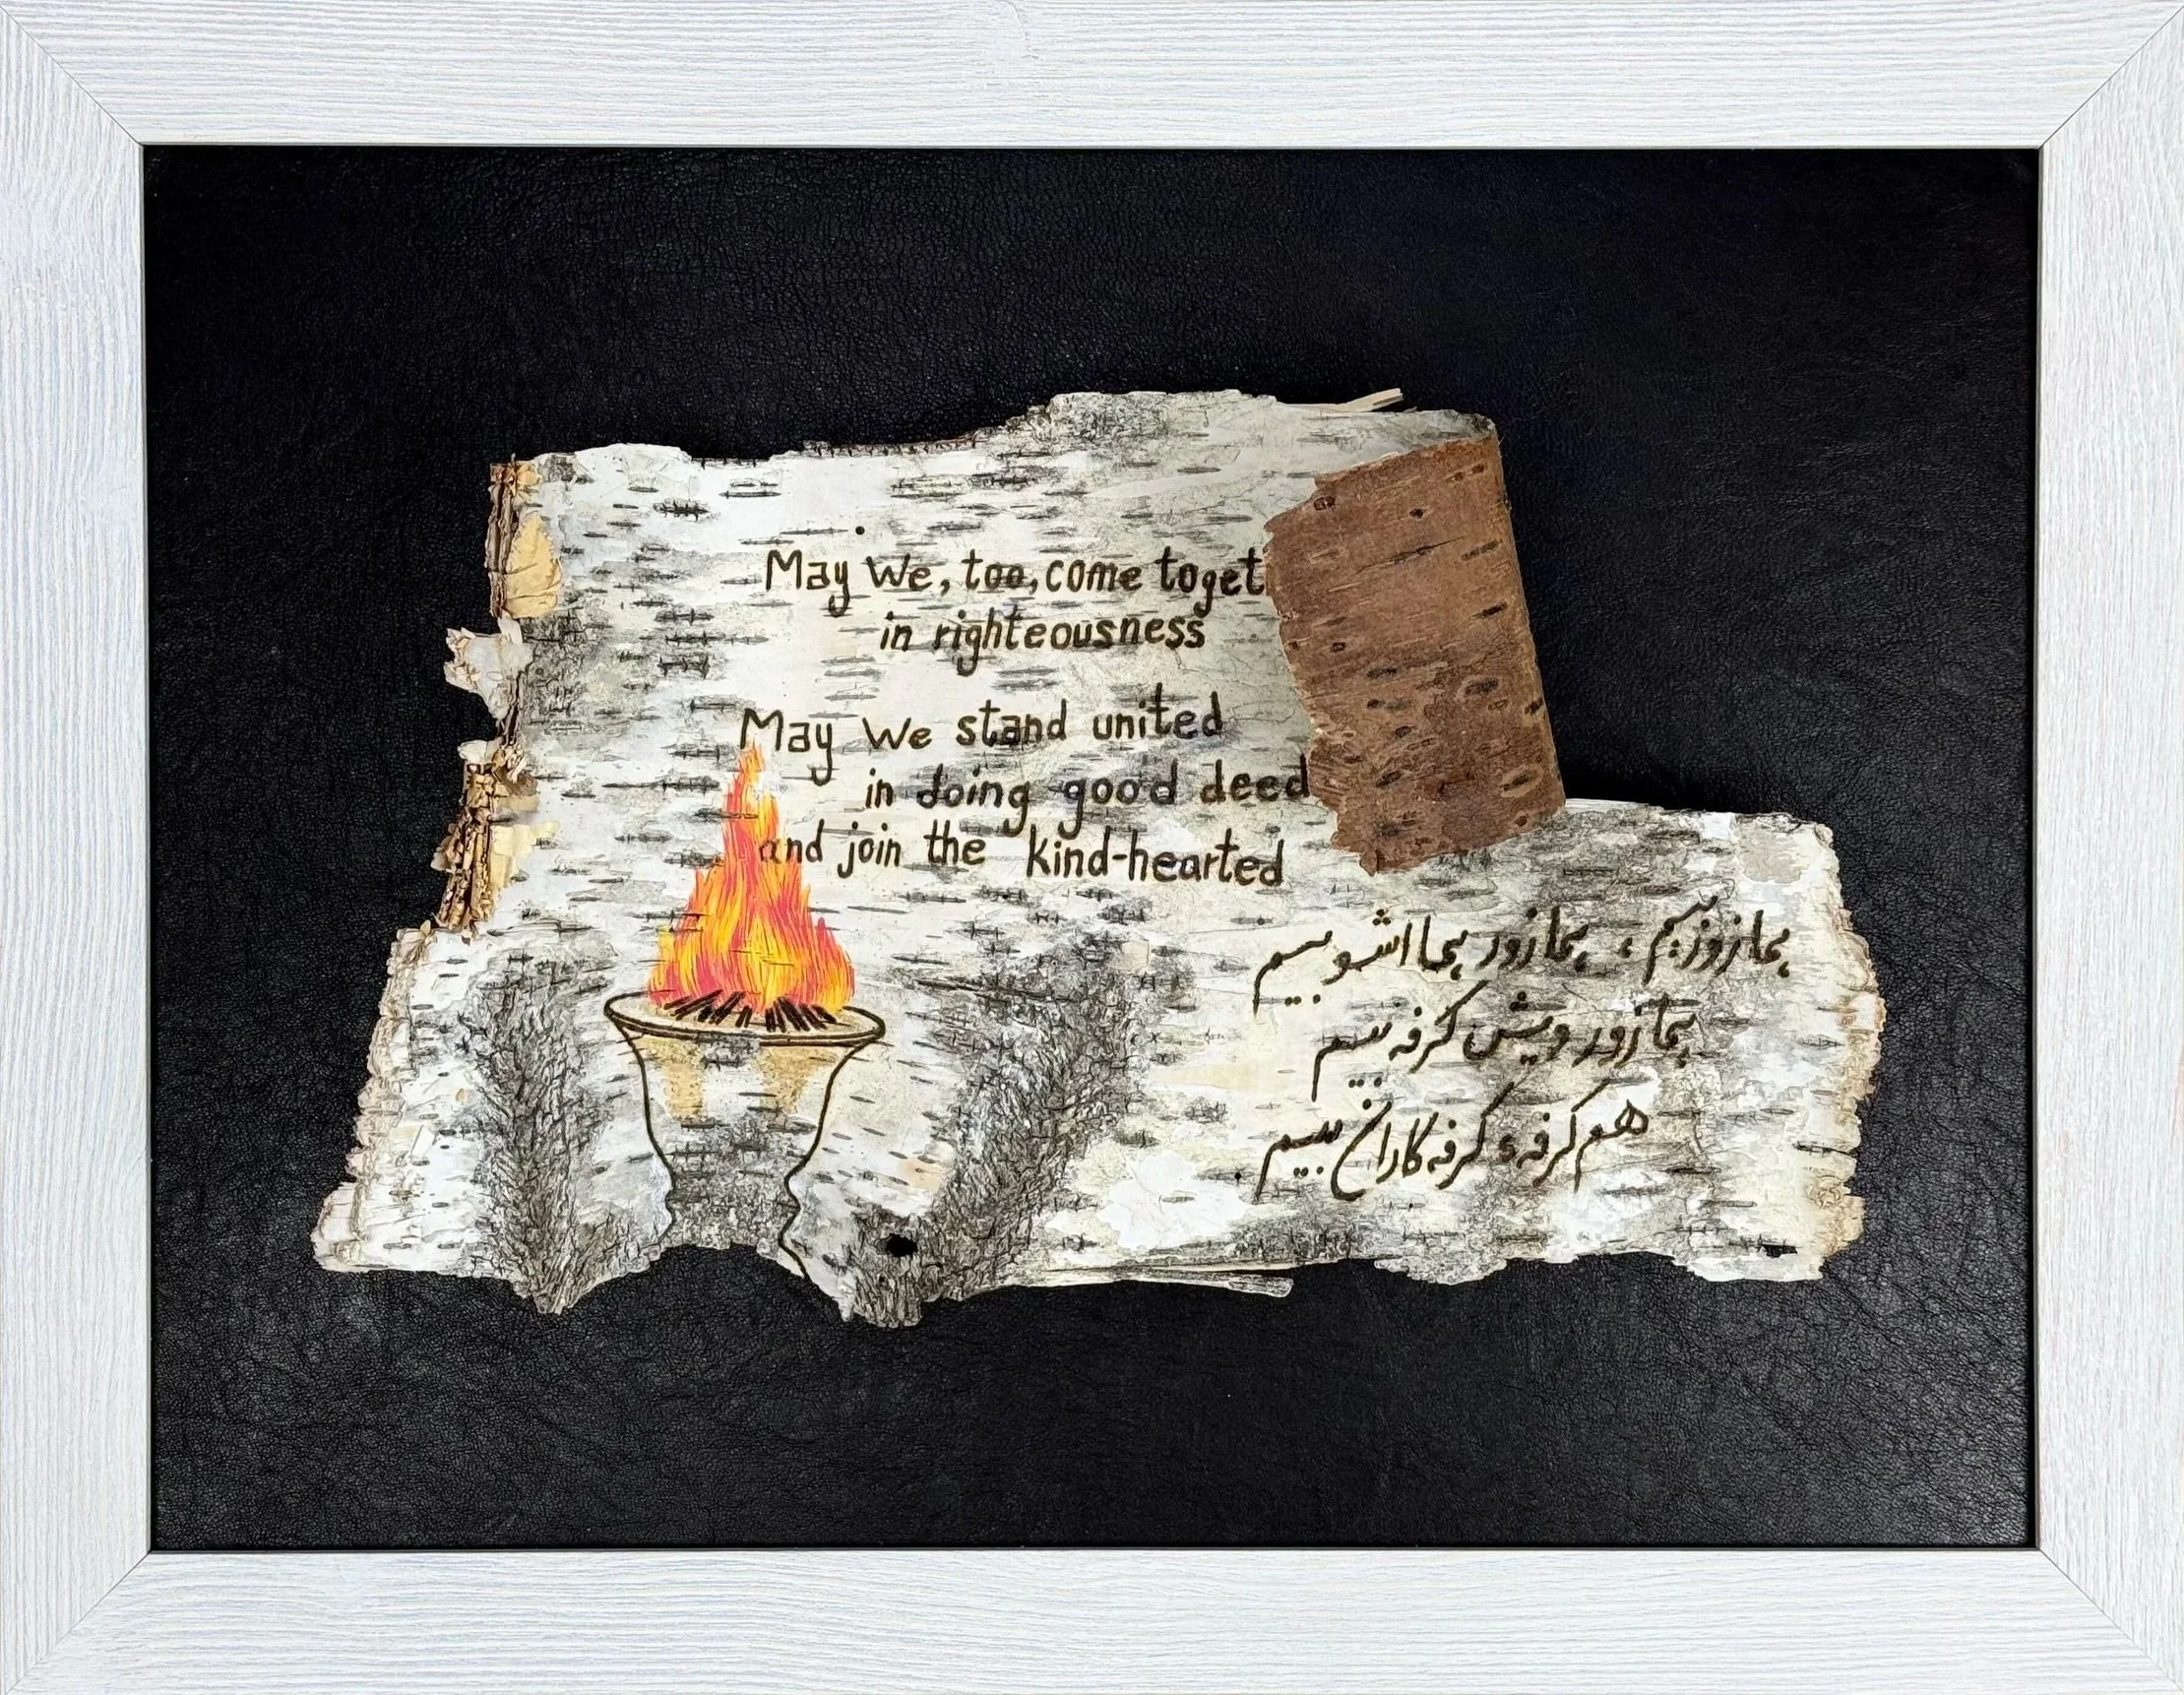 May We, too, come toget
in righteousness
May We stand united
in doing good deed
and join the kind-hearted
همازوزبیم، همازور هما اشوبیم
همازور ویش کرفه بیم
هم کرفهٔ کرفه کاران بیم